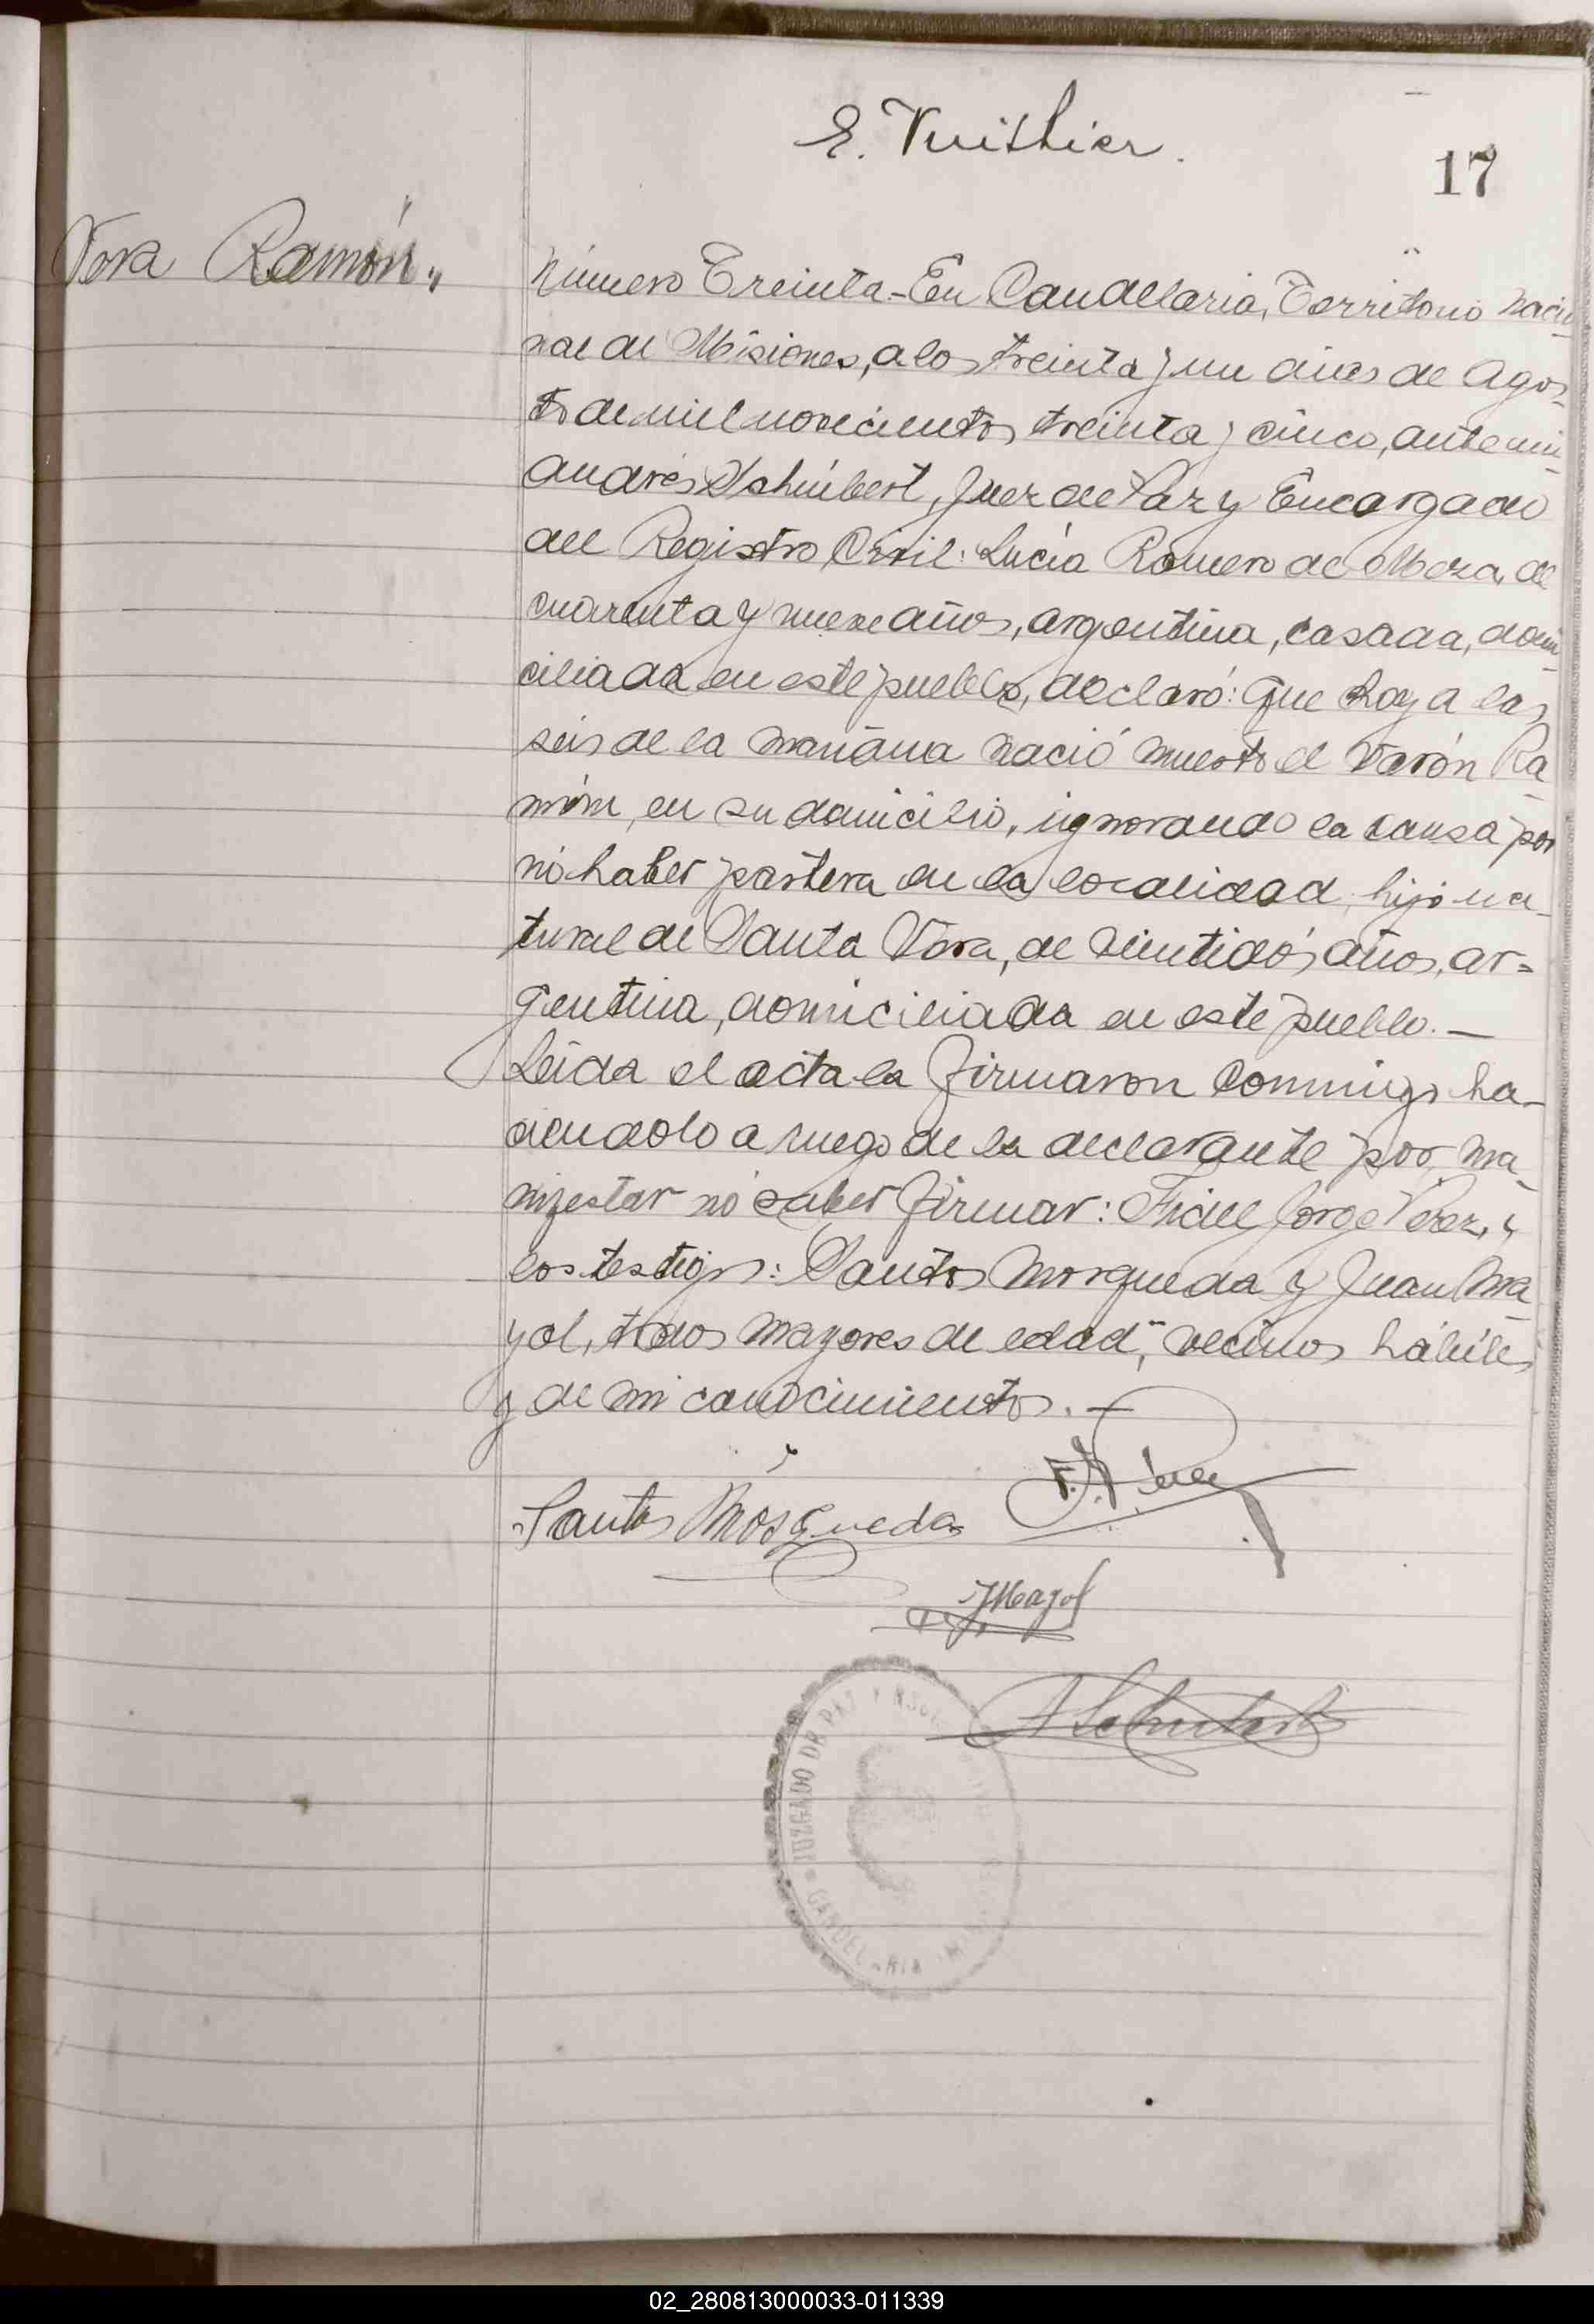 E. Vuithier.
17
Vera Ramón.,
Número Treinta-En Candelaria, Territorio Nacio-
nal de Misiones, a los treinta y un días de Agos-
to de mil novecientos treinta y cinco, ante mi-
Andrés Schúbert, Juez de Paz y Encargado
del Registro Civil: Lucía Romero de Meza, de
cuarenta y nueve años, argentina, casada, domi-
ciliada en este pueblo, declaró: Que hoy a las
seis de la mañana nació muerto el varón Ra-
món, en su domicilio, ignorando la causa por
nó haber partera en la localidad, hijo na-
tural de Santa Vera, de veintidós años, ar=
gentina, domiciliada en este pueblo. —
Leída el acta la firmaron conmigo ha-
ciendolo a ruego de la declarante por ma-
nifestar nó saber firmar: Fidel Jorge Perez, y
los testigos: Santos Mosqueda y Juan Ma-
yol, todos mayores de edad, vecinos hábiles
y de mi conocimiento. —
Santos Mosqueda
F. J. Pérez
J Mayol
A Schubert
JUZGADO DE PAZ Y
CANDELARIA
02_280813000033-011339